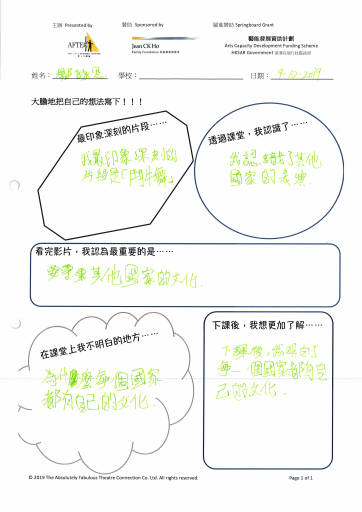 主辦 Presented by
贊助 Sponsored by
躍進資助 Springboard Grant
AFTEC
Jean CK Ho
Family Foundation
藝能發展資助計劃
Arts Capacity Development Funding Scheme
HKSAR Government
姓名：
學校：
日期： 9-12-2019
大膽地把自己的想法寫下！！！
最印象深刻的片段……
我最印象深刻的
片段是「鬥牛舞」
透過課堂，我認識了……
我認識了其他
國家的表演.
看完影片，我認為最重要的是……
要尊重其他國家的文化.
在課堂上我不明白的地方……
為什麼每個國家
都有自己的文化.
下課後，我想更加了解……
下課後，
每一個國家都有自
己的文化.
© 2019 The Absolutely Fabulous Theatre Connection Co. Ltd. All rights reserved.
Page 1 of 1